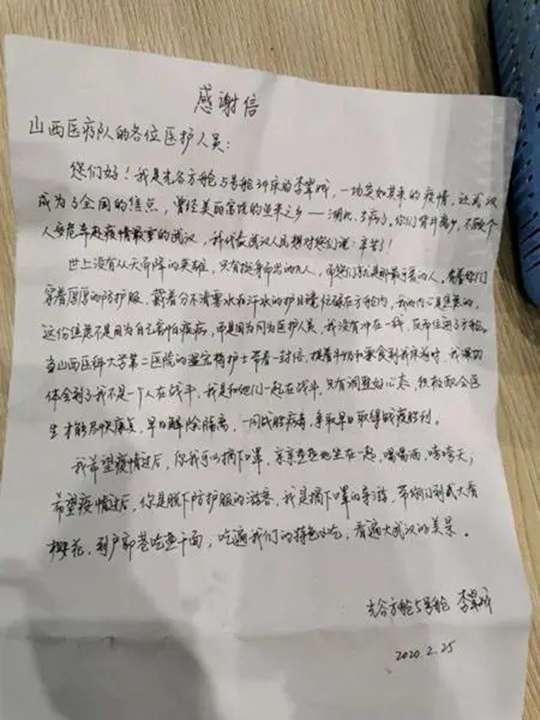 感谢信
山西医疗队的各位医护人员：
您们好！我是光谷方舱5号舱 床的李 ，一场突如其来的疫情，让武汉
成为了全国的焦点，曾经美丽富饶的鱼米之乡——湖北，生病了。你们背井离乡，不顾个
人安危奔赴疫情最重的武汉，我代表武汉人民想对您们说：辛苦了！
世上没有从天而降的英雄，只有挺身而出的凡人，而您们就是那最可爱的人。看着你们
穿着厚厚的防护服，戴着分不清雾水和汗水的护目镜忙碌在方舱内，我的内心是焦急的。
这份焦急不是因为自己害怕疾病，而是因为同为医护人员，我没有冲在一线，反而住进了方舱。
当山西医科大学第二医院的 护士带着一封信，提着牛奶和零食到我床前时，我深切
体会到了我不是一个人在战斗，我是和他们一起在战斗，只有调整好心态，积极配合医
生才能尽快康复，早日解除隔离，一同战胜病毒，争取早日取得战疫胜利。
我希望疫情过后，你我可以摘下口罩，亲亲热热地坐在一起，喝喝酒，唠唠天；
希望疫情过后，你是脱下防护服的游客，我是摘下口罩的导游，带你们到武大看
樱花，到户部巷吃热干面，吃遍我们的特色小吃，看遍大武汉的美景。
光谷方舱5号舱 李
2020.2.25